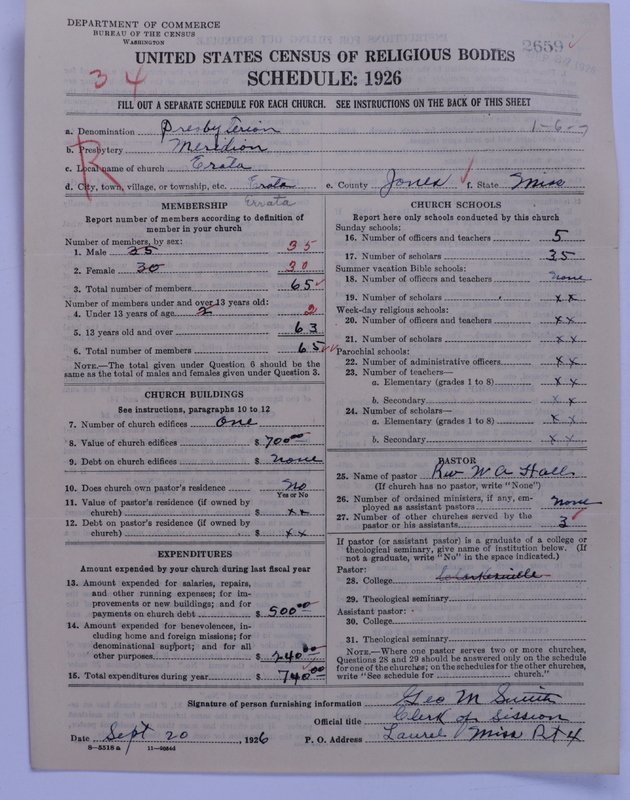 DEPARTMENT OF COMMERCE
BUREAU OF THE CENSUS
WASHINGTON
2659
UNITED STATES CENSUS OF RELIGIOUS BODIES
SCHEDULE: 1926
3 4
FILL OUT A SEPARATE SCHEDULE FOR EACH CHURCH. SEE INSTRUCTIONS ON THE BACK OF THIS SHEET
a. Denomination Presbyterion 1-6-7
b. Presbytery Meridion
R
c. Local name of church Erata
d. City, town, village, or township, etc. Erata e. County Jones f. State Miss
Errata
MEMBERSHIP
Report number of members according to definition of
member in your church
Number of members, by sex:
1. Male 35 35
2. Female 30 30
3. Total number of members 65
Number of members under and over 13 years old:
4. Under 13 years of age 2 2
5. 13 years old and over 63
6. Total number of members 65
NOTE.—The total given under Question 6 should be the
same as the total of males and females given under Question 3.
CHURCH BUILDINGS
See instructions, paragraphs 10 to 12
7. Number of church edifices one
8. Value of church edifices $ 700 00
9. Debt on church edifices $ none
10. Does church own pastor's residence No
Yes or No
11. Value of pastor's residence (if owned by
church) $ xx
12. Debt on pastor's residence (if owned by
church) $ xx
EXPENDITURES
Amount expended by your church during last fiscal year
13. Amount expended for salaries, repairs,
and other running expenses; for im-
provements or new buildings; and for
payments on church debt $ 500 00
14. Amount expended for benevolences, in-
cluding home and foreign missions; for
denominational support; and for all
other purposes $ 240 00
15. Total expenditures during year $ 740 00
CHURCH SCHOOLS
Report here only schools conducted by this church
Sunday schools:
16. Number of officers and teachers 5
17. Number of scholars 35
Summer vacation Bible schools:
18. Number of officers and teachers none
19. Number of scholars xx
Week-day religious schools:
20. Number of officers and teachers xx
21. Number of scholars xx
Parochial schools:
22. Number of administrative officers xx
23. Number of teachers—
a. Elementary (grades 1 to 8) xx
b. Secondary xx
24. Number of scholars—
a. Elementary (grades 1 to 8) xx
b. Secondary xx
PASTOR
25. Name of pastor Rev W A Hall
(If church has no pastor, write "None")
26. Number of ordained ministers, if any, em-
ployed as assistant pastors none
27. Number of other churches served by the
pastor or his assistants 3
If pastor (or assistant pastor) is a graduate of a college or
theological seminary, give name of institution below. (If
not a graduate, write "No" in the space indicated.)
Pastor:
28. College Clarkesville
29. Theological seminary
Assistant pastor:
30. College
31. Theological seminary
NOTE.—Where one pastor serves two or more churches,
Questions 28 and 29 should be answered only on the schedule
for one of the churches; on the schedules for the other churches,
write "See schedule for church."
Signature of person furnishing information Geo M Smith
Official title Clerk of Session
Date Sept 20, 1926 P. O. Address Laurel Miss Rt 4
8-5518a 11-90544